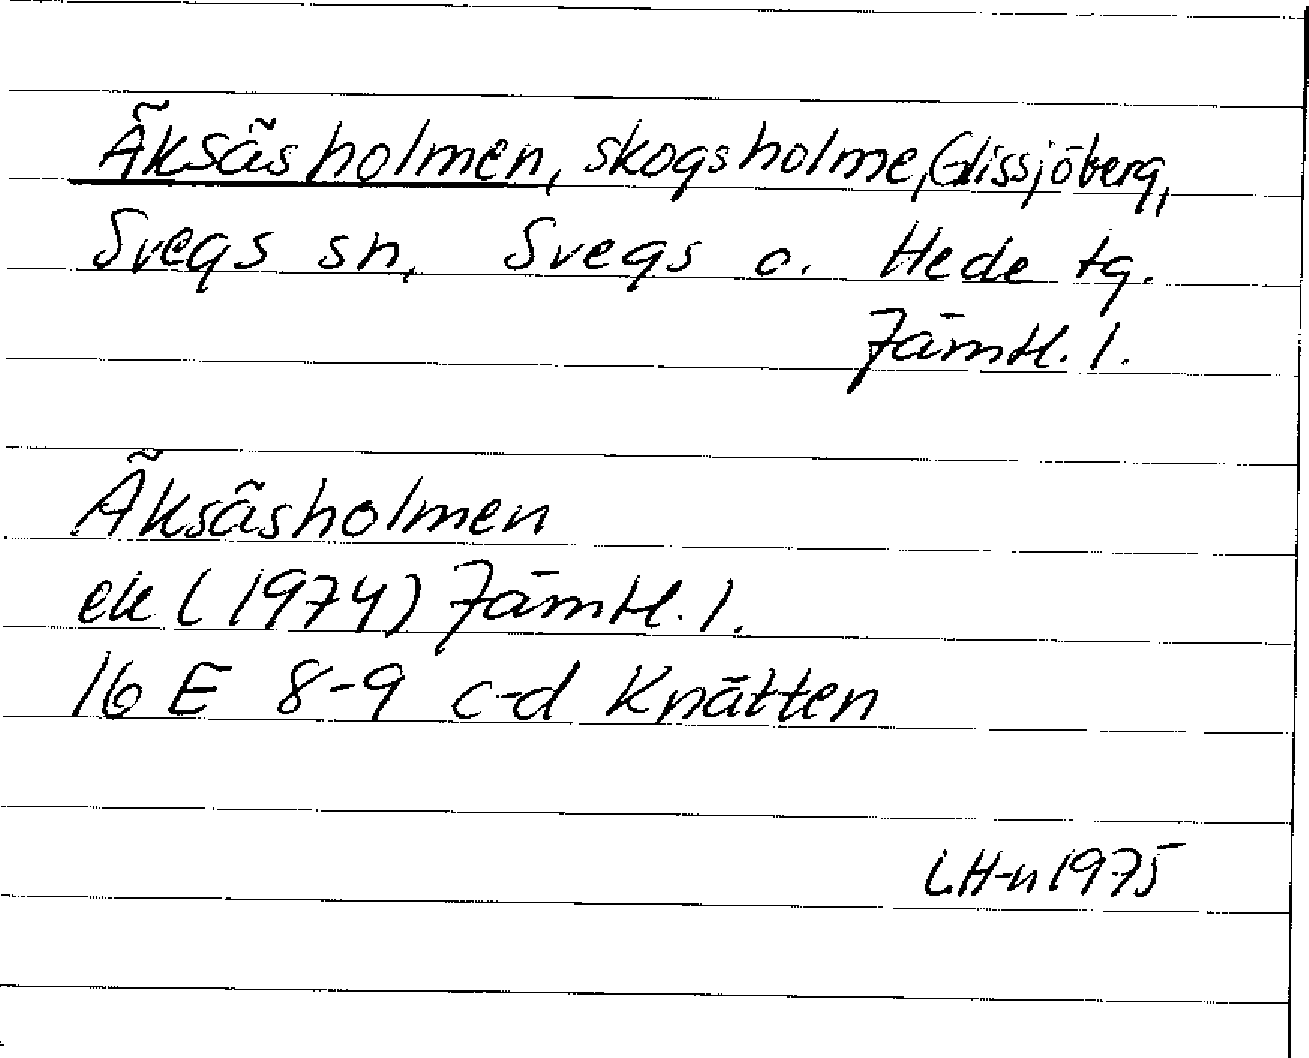 Åksåsholmen, skogsholme, Glissjöberg,
Svegs sn, Svegs o. Hede tg.
Jämtl. l.
Åksåsholmen
ek (1974) Jämtl. l.
16 E 8-9 c-d Knätten
LH-n 1975